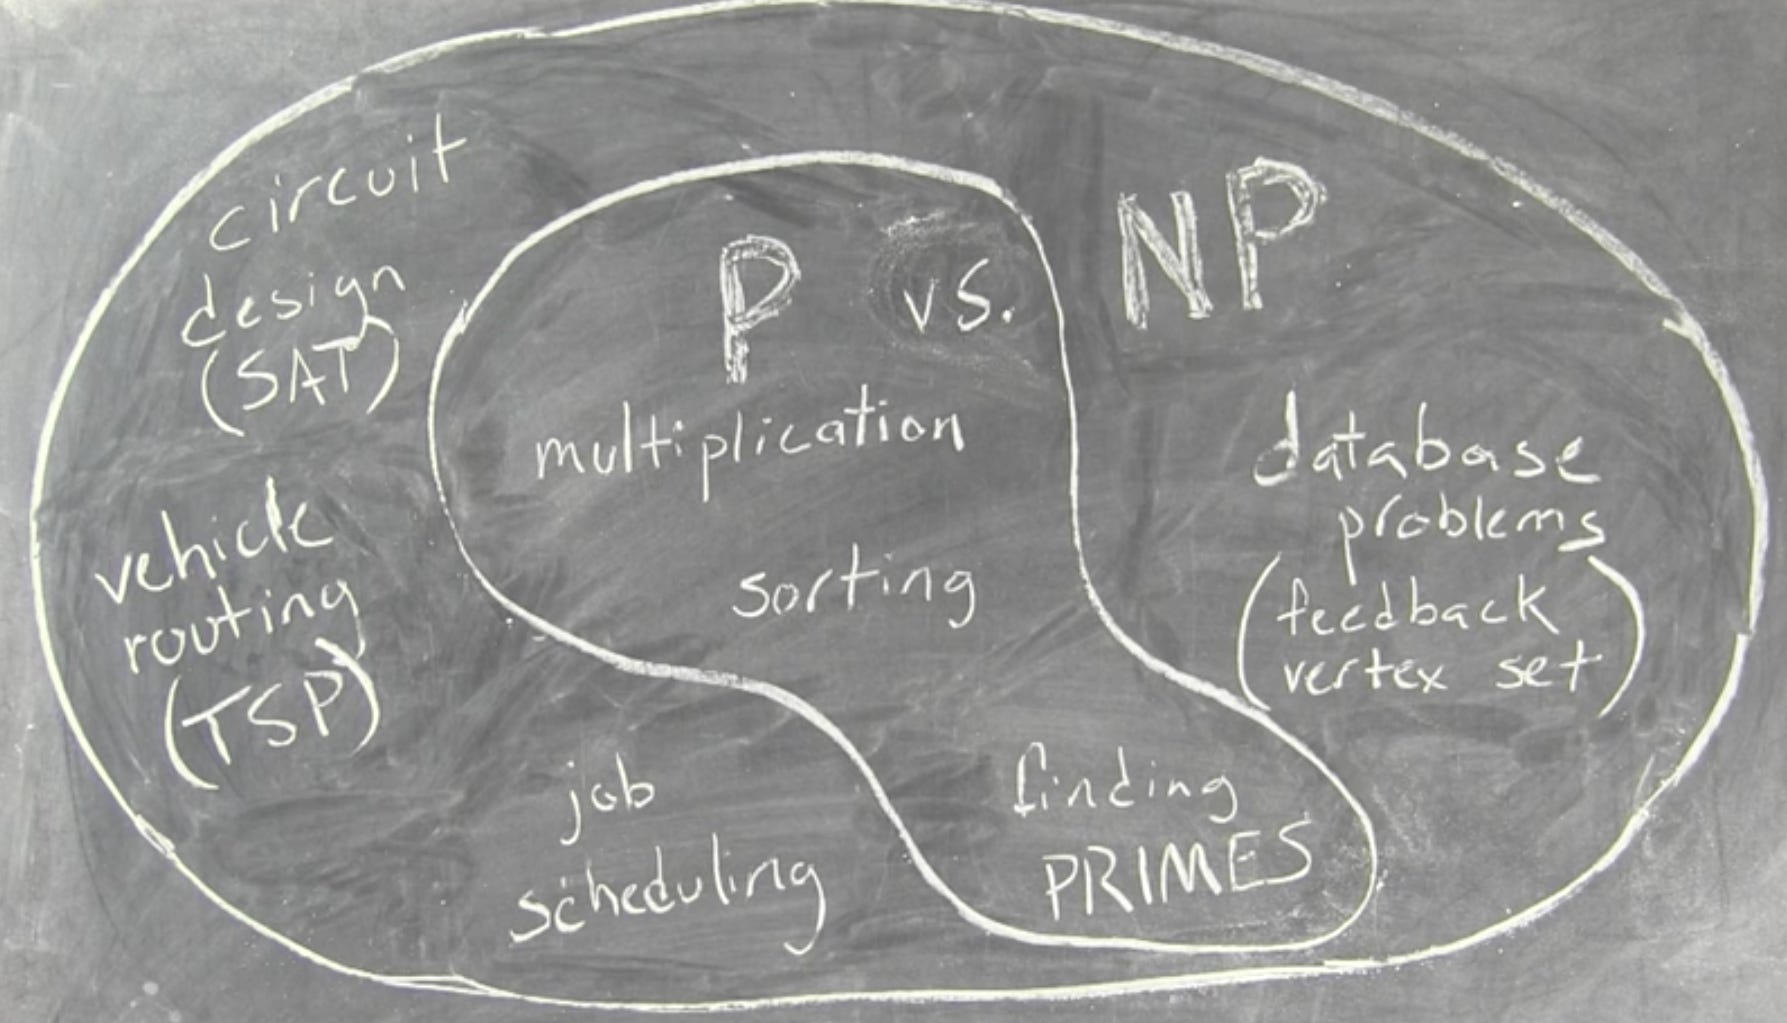 P vs. NP
circuit
design
(SAT)
vehicle
routing
(TSP)
job
scheduling
multiplication
sorting
finding
PRIMES
database
problems
(feedback
vertex set)